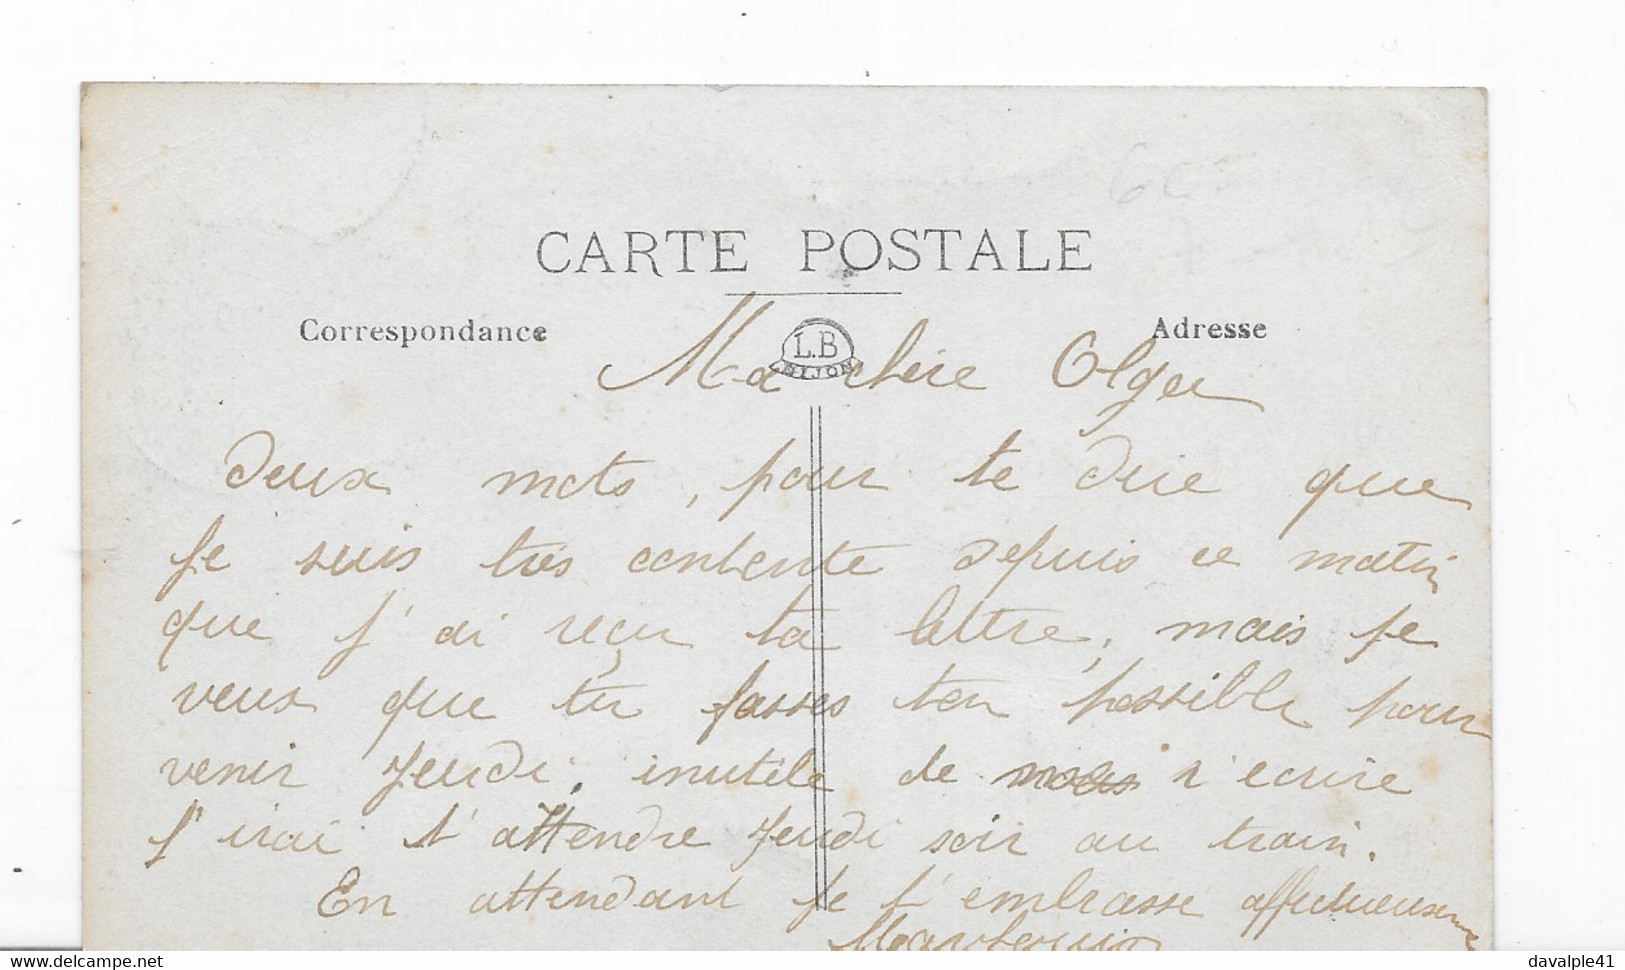 CARTE POSTALE
Correspondance
L.B
DIJON
Adresse
Ma chère Olga
deux mots, pour te dire que
je suis très contente depuis ce matin
que j'ai reçu ta lettre, mais je
veux que tu fasses ton possible pour
venir Jeudi, inutile de r'écrire
j'irai t'attendre Jeudi soir au train.
En attendant je t'embrasse affectueusem
davalple41